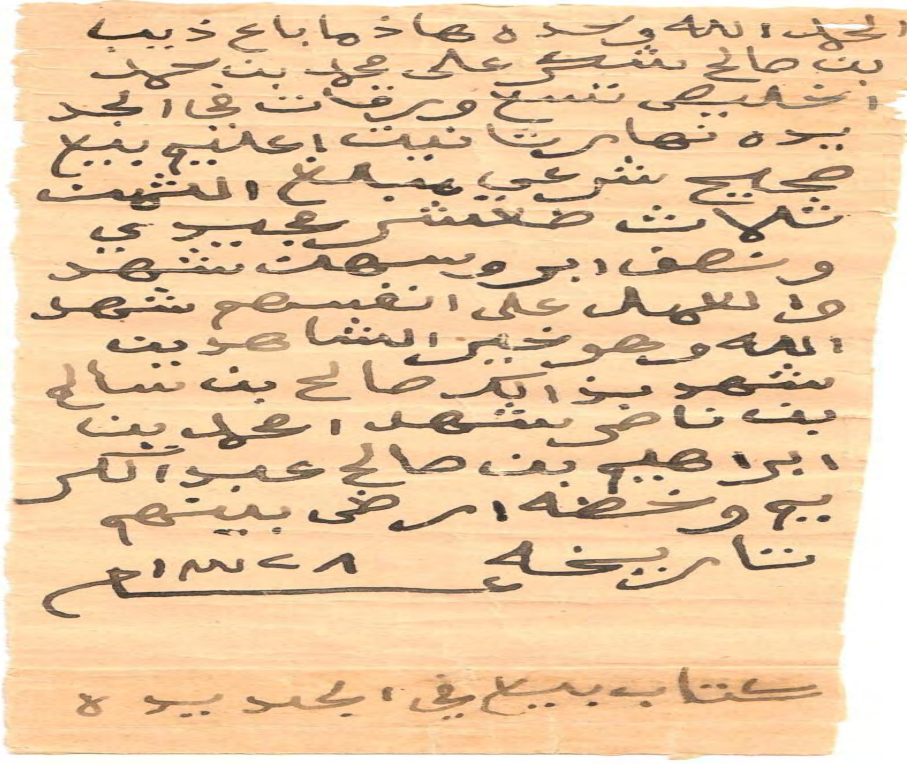 الحمد الله وحده هاذ ما باع ذيب
بن صالح شكر على محمد بن حمد
الخليصي تسع ورقات في الجد
يده نهار ثانيت اعليهم بيع
صحيح شرعي بمبلغ الثمن
ثلاث عبدي
ونصف ابر وسهلت شهد
على انفسهم شهد
الله وهو خير الشاهدين
شهد بذالك صالح بن سالم
بن ناصر شهد احمد بن
ابراهيم بن صالح عبد الكر
يم وخطه ارضى بينهم
تاريخه ١٣٢٨
كتاب بيع في الجديده